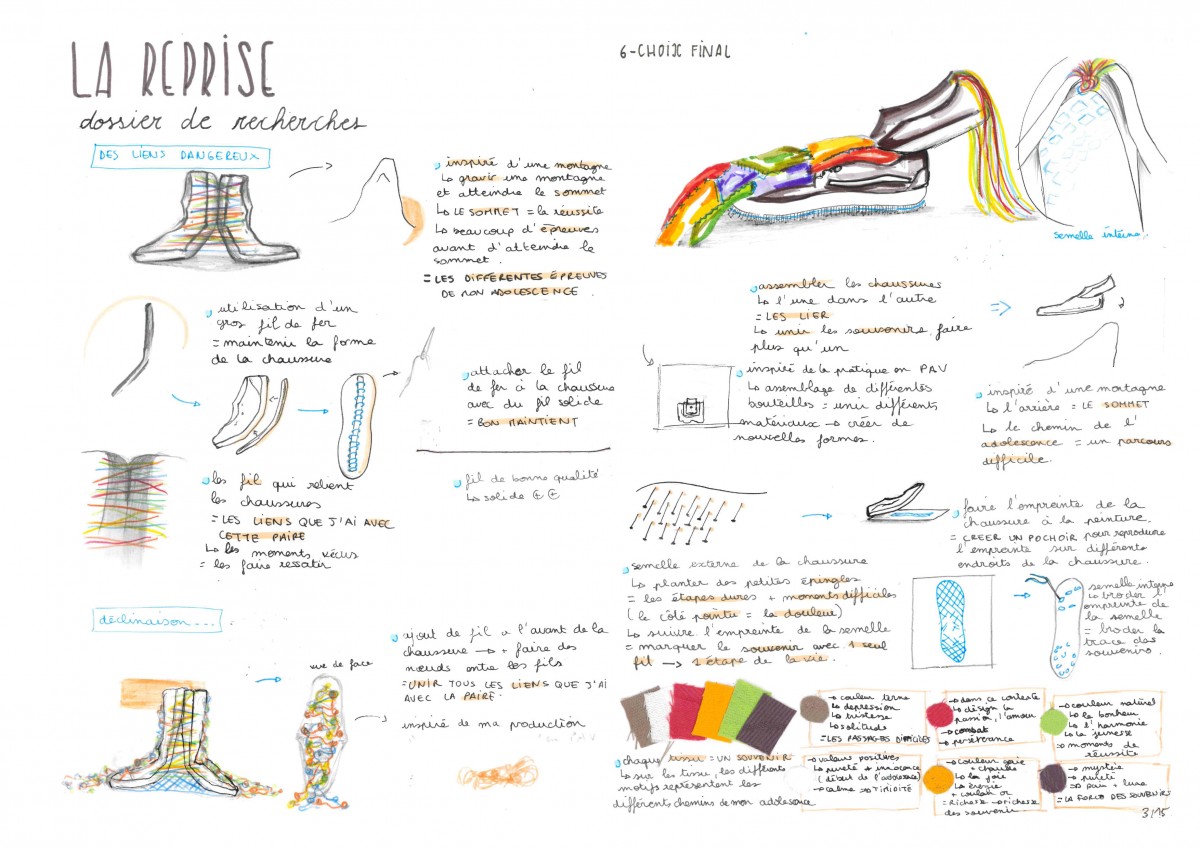 LA REPRISE
dossier de recherches
DES LIENS DANGEREUX
inspiré d'une montagne
↳ gravir une montagne
et atteindre le sommet
↳ LE SOMMET = la réussite
↳ beaucoup d'épreuves
avant d'atteindre le
sommet.
= LES DIFFÉRENTES ÉPREUVES
DE MON ADOLESCENCE.
utilisation d'un
gros fil de fer
= maintenir la forme
de la chaussure
attacher le fil
de fer à la chaussure
avec du fil solide
= BON MAINTIENT
les fil qui relient
les chaussures
= LES LIENS QUE J'AI AVEC
CETTE PAIRE
↳ les moments vécus
= les faire ressortir
fil de bonne qualité
↳ solide ⊕ ⊕
déclinaison...
vue de face
ajout de fil a l'avant de la
chaussure → + faire des
nœuds entre les fils
= UNIR TOUS LES LIENS QUE J'AI
AVEC LA PAIRE.
inspiré de ma production
6-CHOIX FINAL
semelle interne.
assembler les chaussures
↳ l'une dans l'autre
= LES LIER
↳ unir les souvenirs, faire
plus qu'un
inspiré de la pratique en PAV
↳ assemblage de différentes
bouteilles = unir différents
matériaux → créer de
nouvelles formes.
inspiré d'une montagne
↳ l'arrière = LE SOMMET
↳ le chemin de l'
adolescence = un parcours
difficile.
faire l'empreinte de la
chaussure à la peinture.
= CREER UN POCHOIR pour reproduire
l'emprainte sur différents
endroits de la chaussure.
semelle externe de la chaussure
↳ planter des petites épingles
= les étapes dures + moments difficiles
(le côté pointu = la douleur)
↳ suivre l'empreinte de la semelle
= marquer le souvenir avec 1 seul
fil → 1 étape de la vie.
semelle interne
↳ broder l'
empreinte de
la semelle
= broder la
trace des
souvenirs.
chaque tissu = UN SOUVENIR
↳ sur les tissu, les différents
motifs représentent les
différents chemins de mon adolescence
→ couleur terne
↳ depression
↳ tristesse
↳ solitude
= LES PASSAGES DIFFICILES
→ dans ce contexte
↳ désign la
passion, l'amour
→ combat
→ persévérance
→ couleur naturel
↳ le bonheur
↳ l'harmonie
↳ la jeunesse
→ moments de
réussite
→ valeurs positives
↳ pureté + innocence
(début de l'adolescence)
→ calme → TIMIDITÉ
→ couleur gaie
+ chaude
↳ la joie
↳ énergie
+ couleur or
= Richesse → richesse
des souvenir
→ mystère
→ pureté
→ paix + luxe
= LA FORCE DES SOUVENIRS
3/15